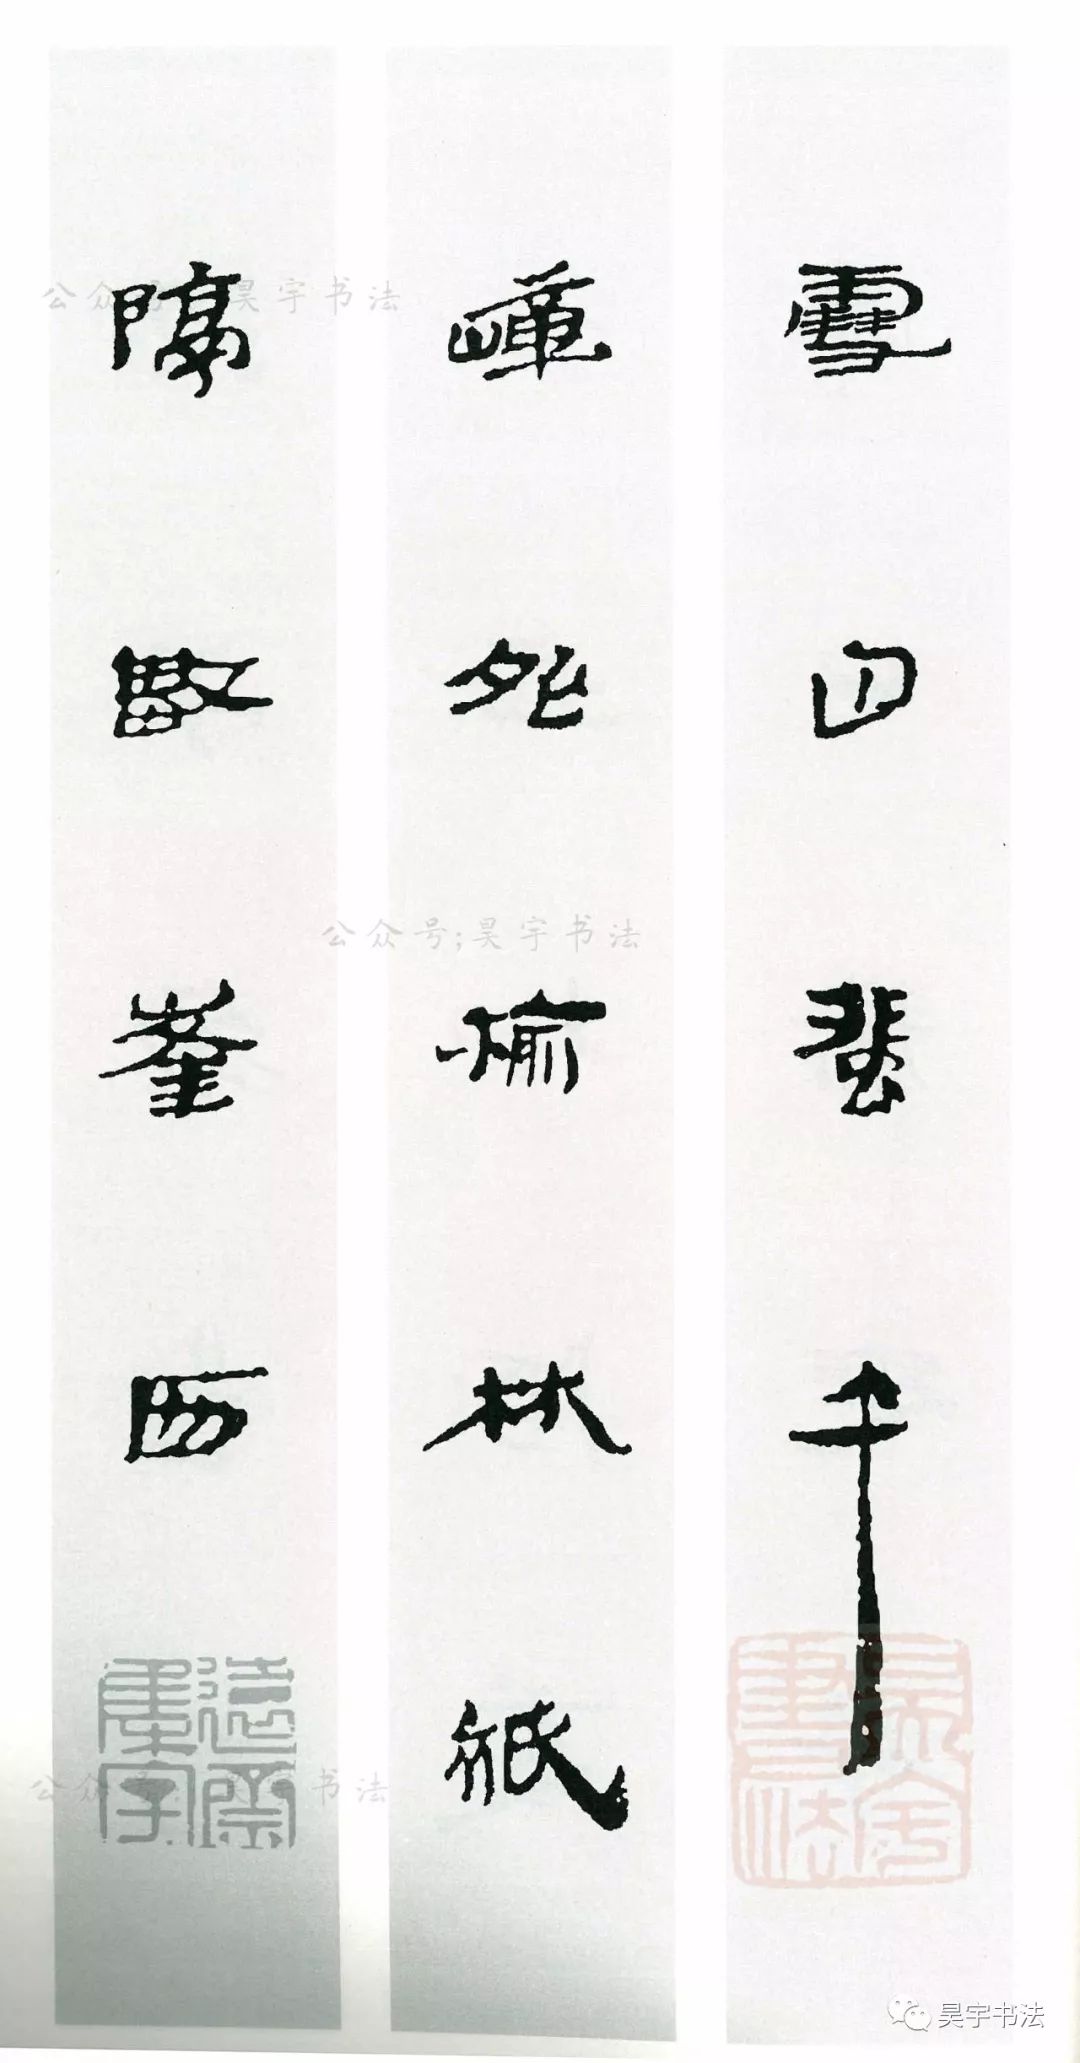 雪蜚千
嶂外榆林祇
隔數峯西
公众号;昊宇书法
公众号;昊宇书法
公众号;昊宇书法
昊宇书法